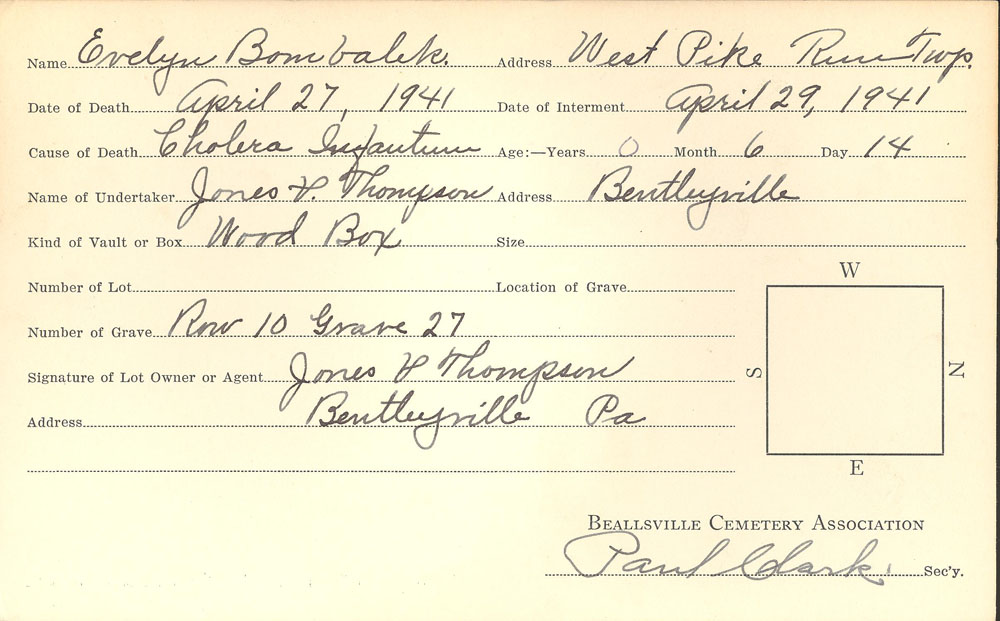 Name Evelyn Bombalek. Address West Pike Run Twp.
Date of Death April 27, 1941 Date of Interment April 29, 1941
Cause of Death Cholera Infantum Age:—Years 0 Month 6 Day 14
Name of Undertaker Jones & Thompson Address Bentleyville
Kind of Vault or Box Wood Box Size
W
Number of Lot Location of Grave
Number of Grave Row 10 Grave 27
Signature of Lot Owner or Agent Jones & Thompson S N
Address Bentleyville Pa
E
BEALLSVILLE CEMETERY ASSOCIATION
Paul Clark. Sec'y.